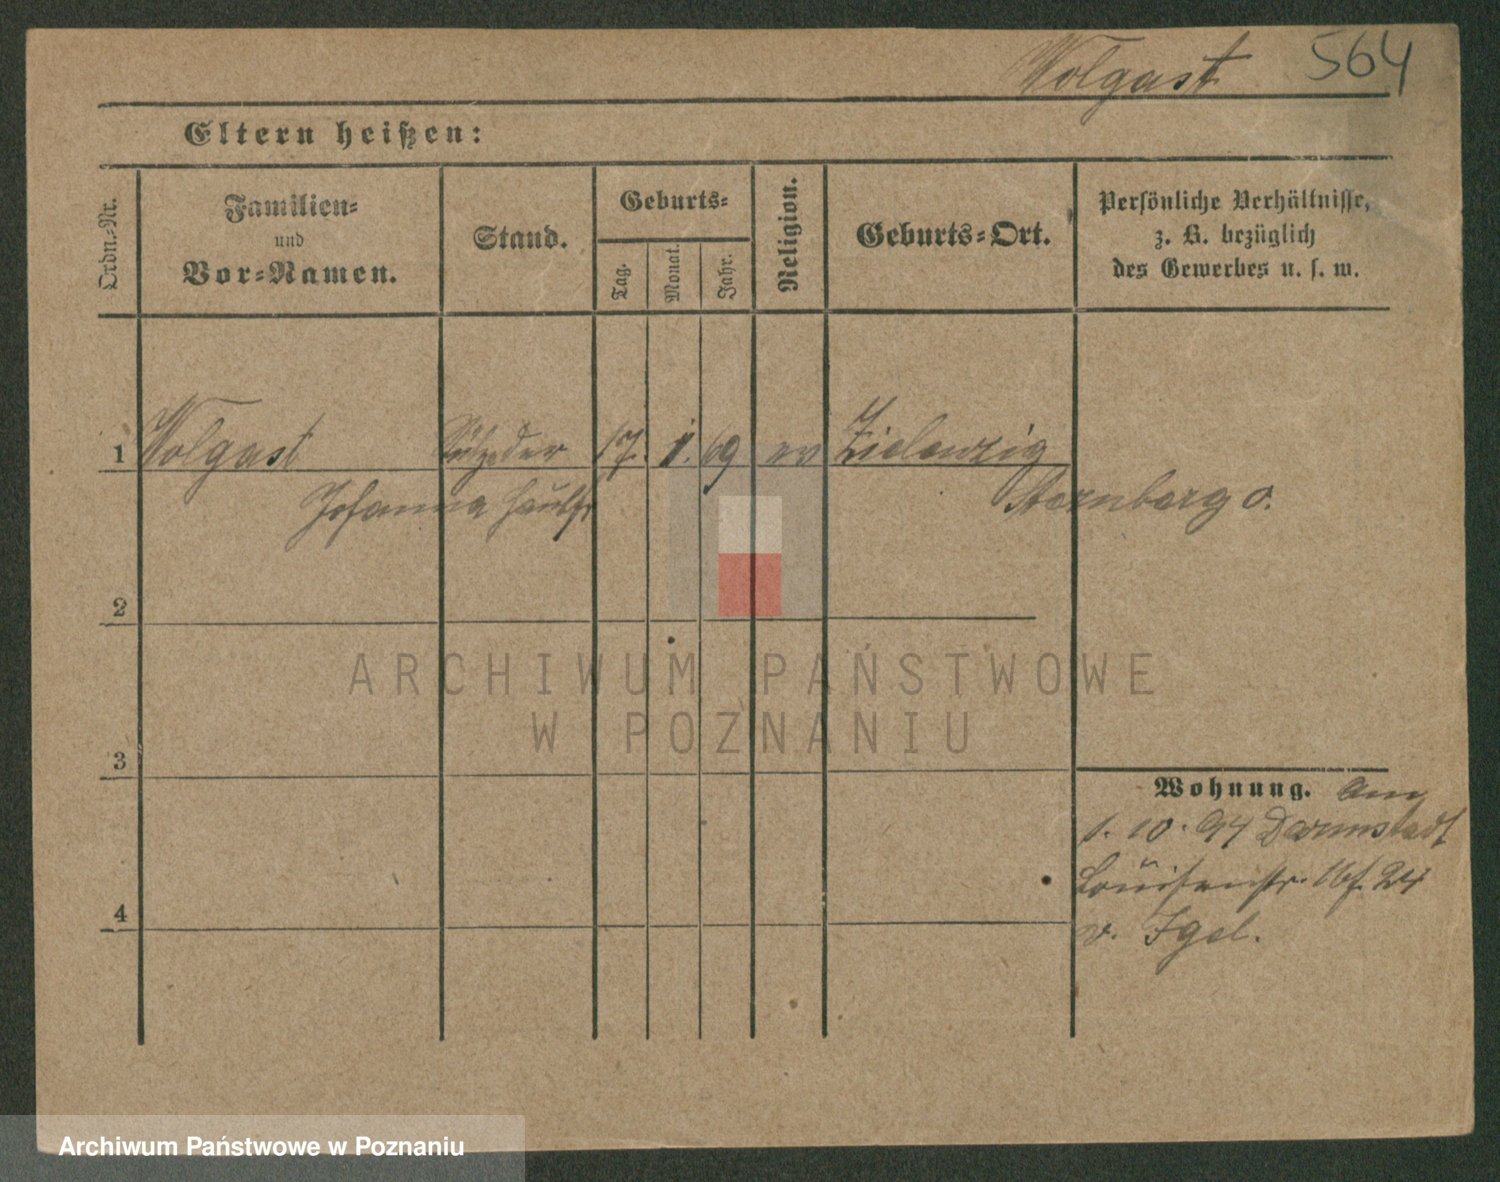 Wolgast 564
Eltern heißen:
Ordn.-Nr.
Familien-
und
Vor-Namen.
Stand.
Geburts-
Tag.
Monat.
Jahr.
Religion.
Geburts-Ort.
Persönliche Verhältnisse,
z. B. bezüglich
des Gewerbes u. s. w.
1 Wolgast 17. 1. 69 ev Zielenzig
Johanna Sternberg O.
2
ARCHIWUM PAŃSTWOWE
W POZNANIU
3
Wohnung. Am
1. 10. 94 Darmstadt
Louisenstr. 24
v. Igel.
4
Archiwum Państwowe w Poznaniu